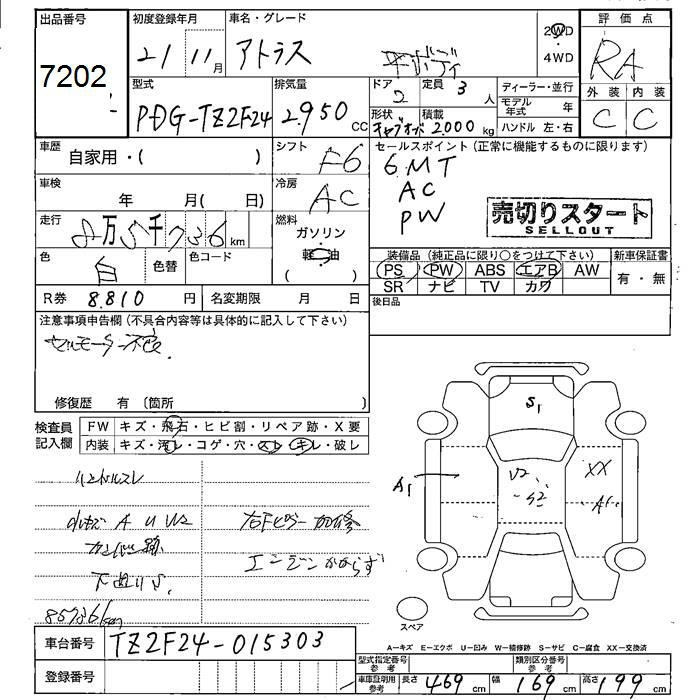 出品番号 7202
初度登録年月 21 11月
車名・グレード アトラス 平ボディ
2WD・4WD
評価点 RA
型式 PDG-TZ2F24
排気量 2.950 CC
ドア 2 定員 3人
形状 キャブオーバ 積載 2000kg
ディーラー・並行
モデル年式 年
ハンドル 左・右
外装 内装
C C
車歴 自家用・( )
シフト F6
セールスポイント (正常に機能するものに限ります)
6MT
AC
PW
売切りスタート
SELLOUT
車検 年 月( 日)
冷房 AC
走行 8万5千736km
燃料 ガソリン
(軽油)
色 白 色替 色コード
装備品 (純正品に限り○をつけて下さい)
PS PW ABS エアB AW
SR ナビ TV カワ
新車保証書
有・無
R券 8.810円 名変期限 月 日
後日品
注意事項申告欄 (不具合内容等は具体的に記入して下さい)
セルモーター不良
修復歴 有 (箇所 )
検査員記入欄
FW キズ・飛石・ヒビ割・リペア跡・X要
内装 キズ・汚レ・コゲ・穴・スレ・キレ・破レ
ハンドルスレ
A U W2
下廻りS.
エンジンかからず
85736km
S1
A1
U2
S2
XX
A1
スペア
A-キズ E-エクボ U-凹み W-補修跡 S-サビ C-腐食 XX-交換済
車台番号 TZ2F24-015303
登録番号
型式指定番号 参考 類別区分番号 参考
車庫証明用 参考 長さ 469cm 幅 169cm 高さ 199cm